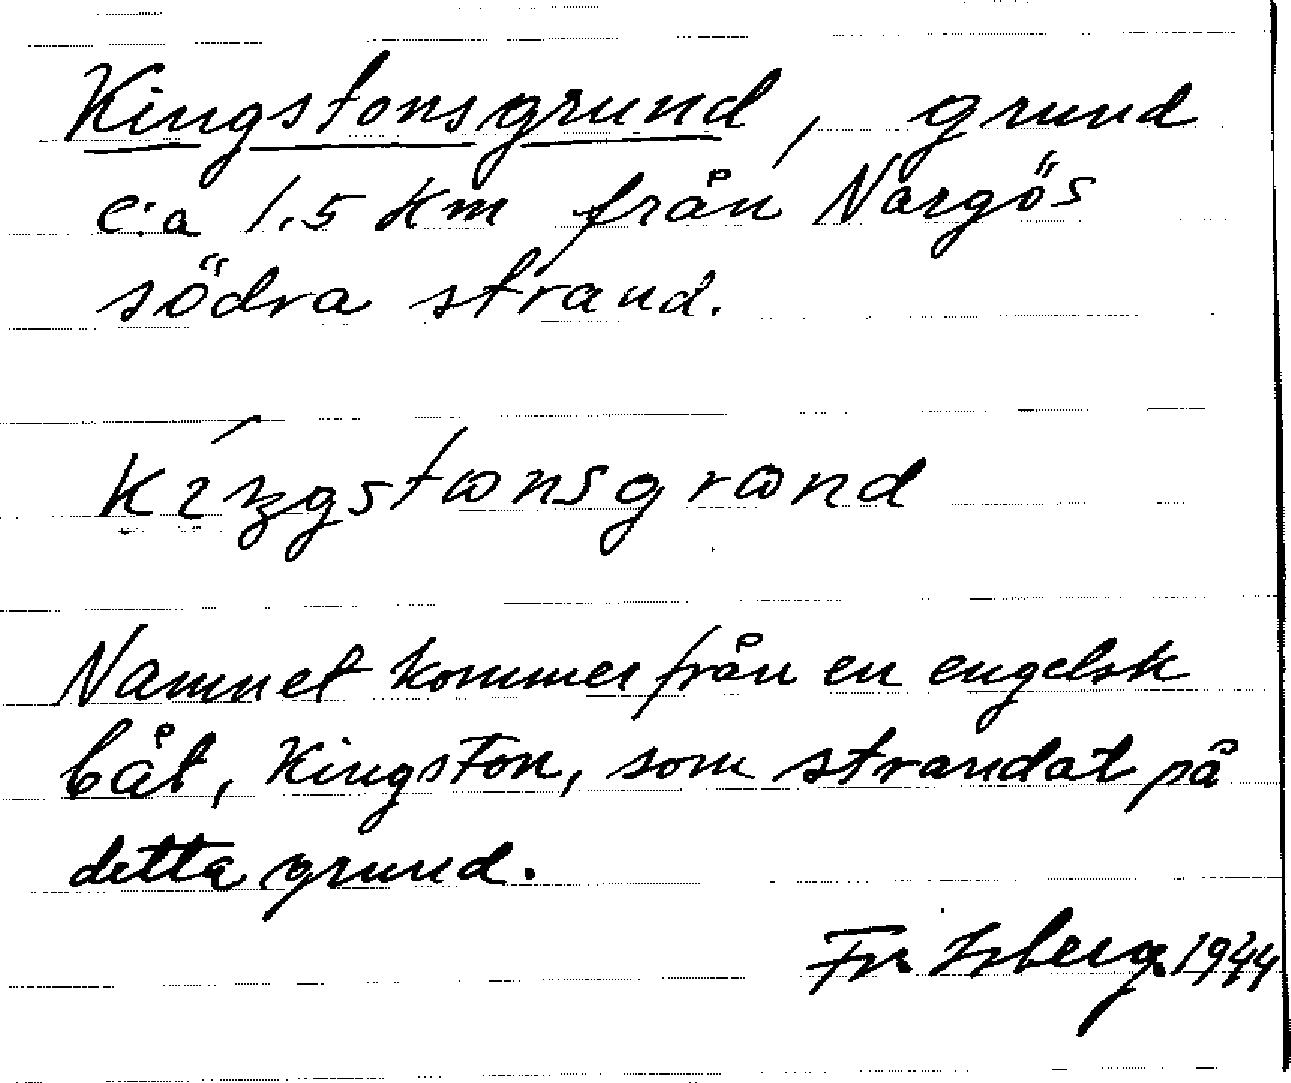 Kingstonsgrund, grund
c:a 1.5 km från Nargös
södra strand.
Namnet kommer från en engelsk
båt, Kingston, som strandat på
detta grund.
1944